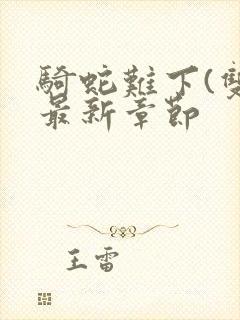 騎蛇難下(雙
最新章節
王雷